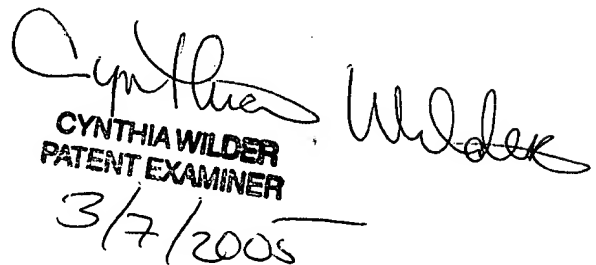 Cynthia Wilder
CYNTHIA WILDER
PATENT EXAMINER
3/7/2005